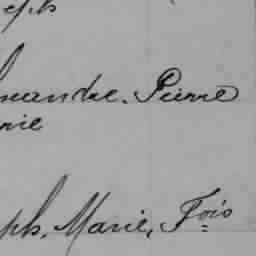 eph
mandre, Pierre
rie
ph, Marie, Fois